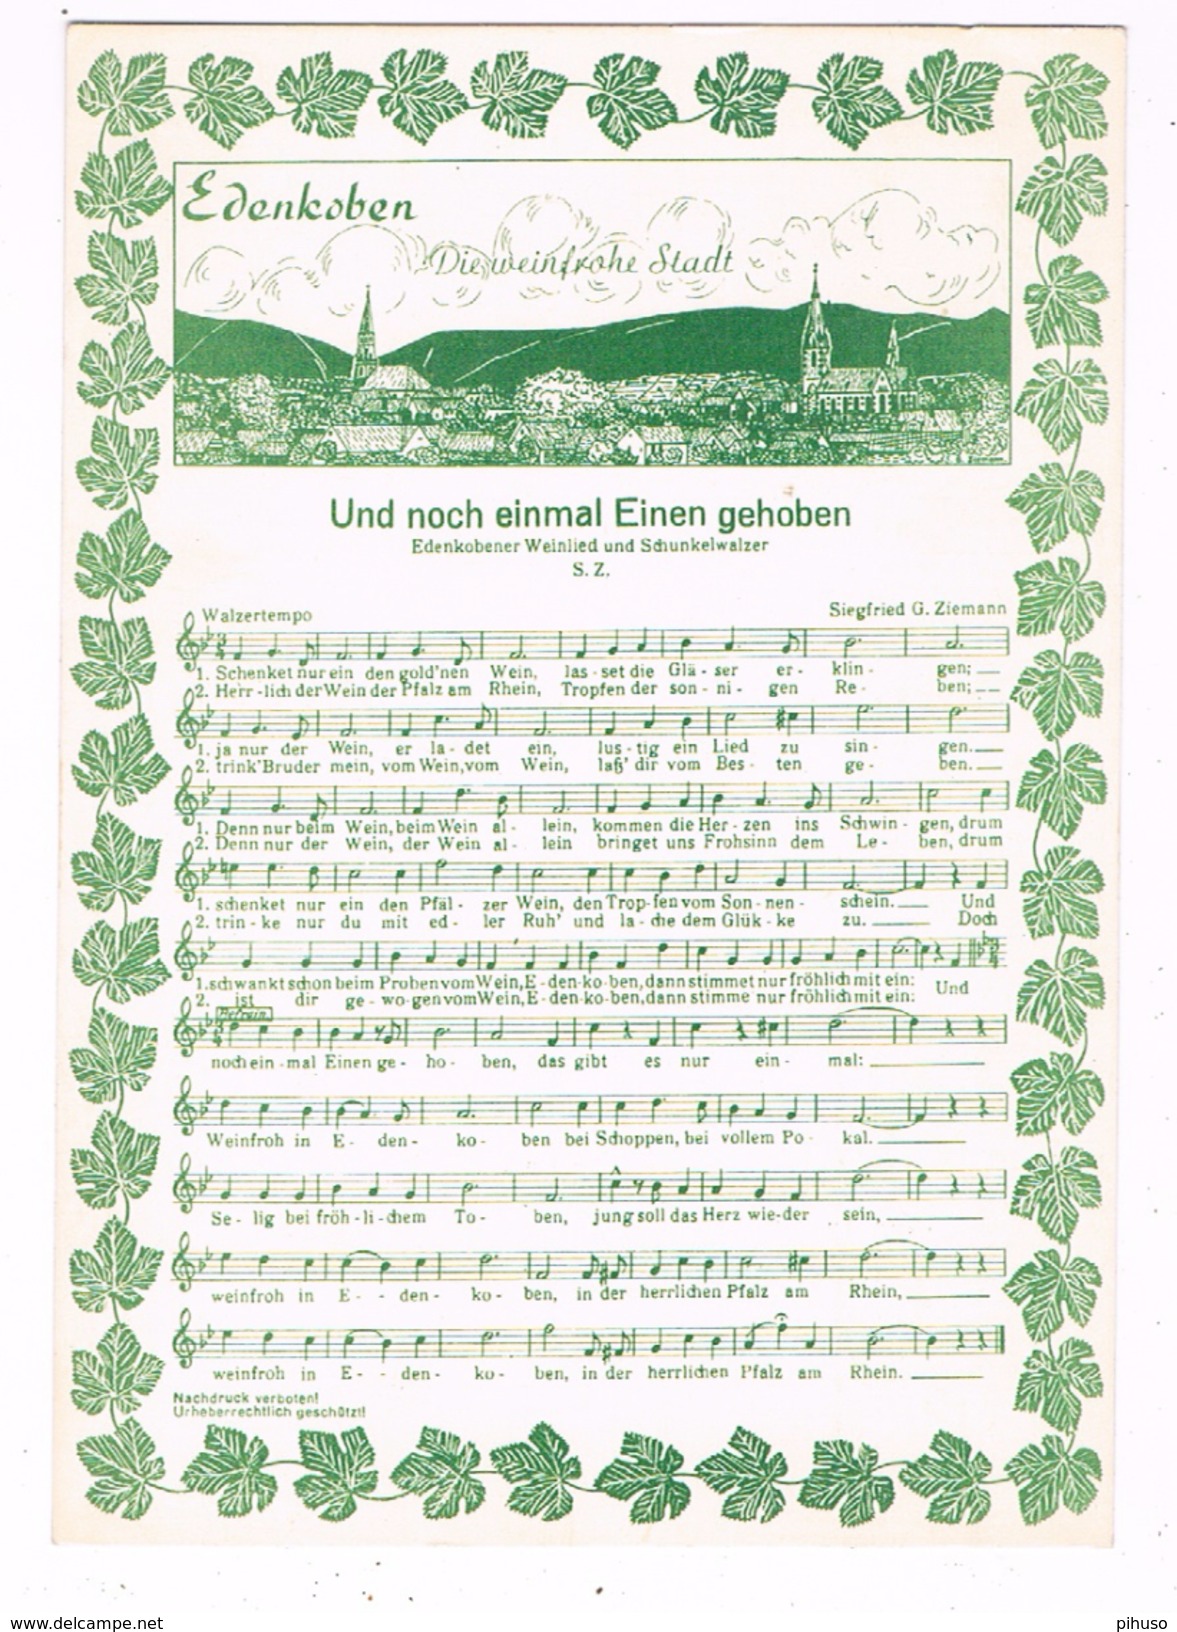 Edenkoben
Die weinfrohe Stadt
Und noch einmal Einen gehoben
Edenkobener Weinlied und Schunkelwalzer
S. Z.
Walzertempo Siegfried G. Ziemann
1. Schenket nur ein den gold'nen Wein, las-set die Glä-ser er-klin-gen;
2. Herr-lich der Wein der Pfalz am Rhein, Tropfen der son-ni-gen Re-ben;
1. ja nur der Wein, er la-det ein, lus-tig ein Lied zu sin-gen.
2. trink' Bruder mein, vom Wein, vom Wein, laß' dir vom Bes-ten ge-ben.
1. Denn nur beim Wein, beim Wein al-lein, kommen die Her-zen ins Schwin-gen, drum
2. Denn nur der Wein, der Wein al-lein bringet uns Frohsinn dem Le-ben, drum
1. schenket nur ein den Pfäl-zer Wein, den Trop-fen vom Son-nen-schein. Und
2. trin-ke nur du mit ed-ler Ruh' und la-che dem Glük-ke zu. Doch
1. schwankt schon beim Proben vom Wein, E-den-ko-ben, dann stimmet nur fröhlich mit ein: Und
2. ist dir ge-wo-gen vom Wein, E-den-ko-ben, dann stimme nur fröhlich mit ein:
Refrain
noch ein-mal Einen ge-ho-ben, das gibt es nur ein-mal:
Weinfroh in E-den-ko-ben bei Schoppen, bei vollem Po-kal.
Se-lig bei fröh-li-chem To-ben, jung soll das Herz wie-der sein,
weinfroh in E--den-ko-ben, in der herrlichen Pfalz am Rhein,
weinfroh in E--den-ko-ben, in der herrlichen Pfalz am Rhein.
Nachdruck verboten!
Urheberrechtlich geschützt!
www.delcampe.net pihuso